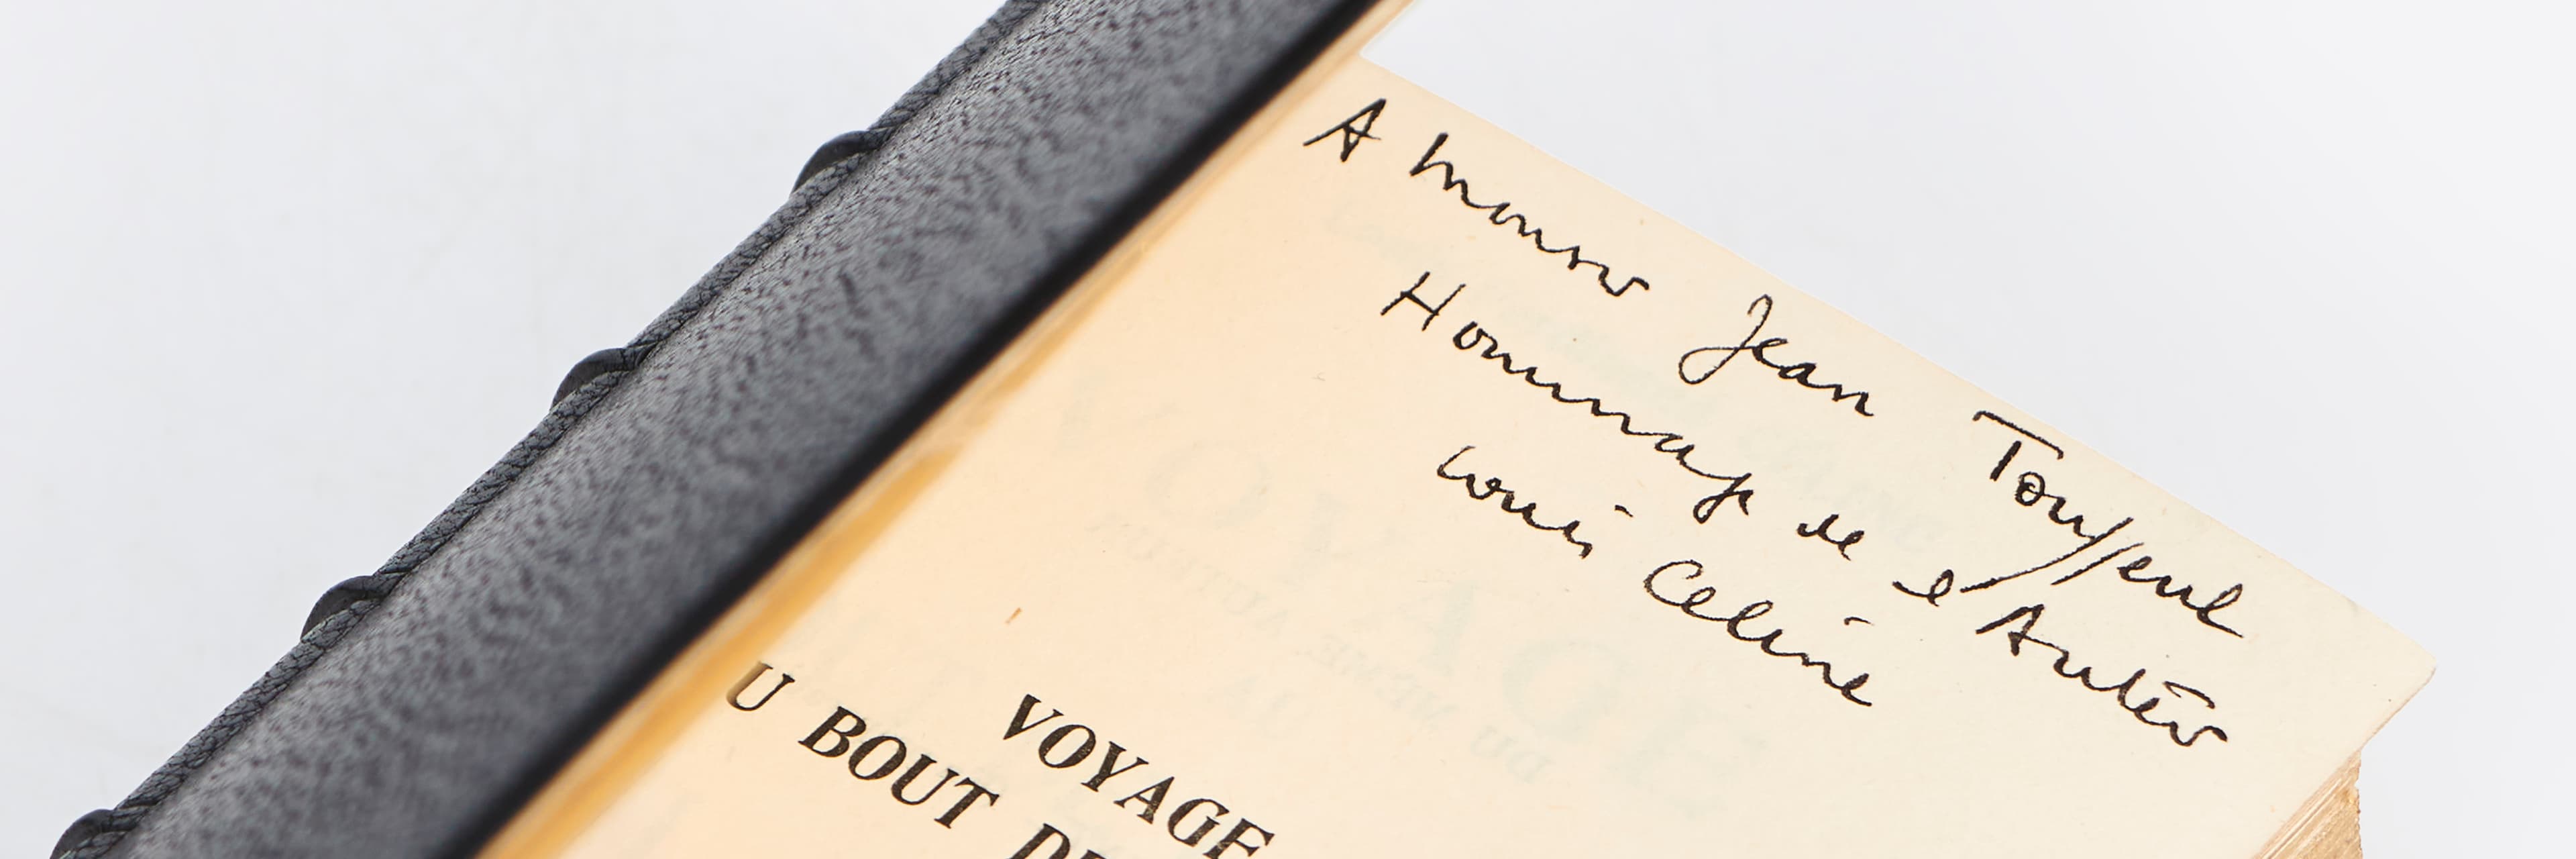 A Monsieur Jean Tousseul
Hommage de l'Auteur
Louis Celine
VOYAGE
U BOUT DE